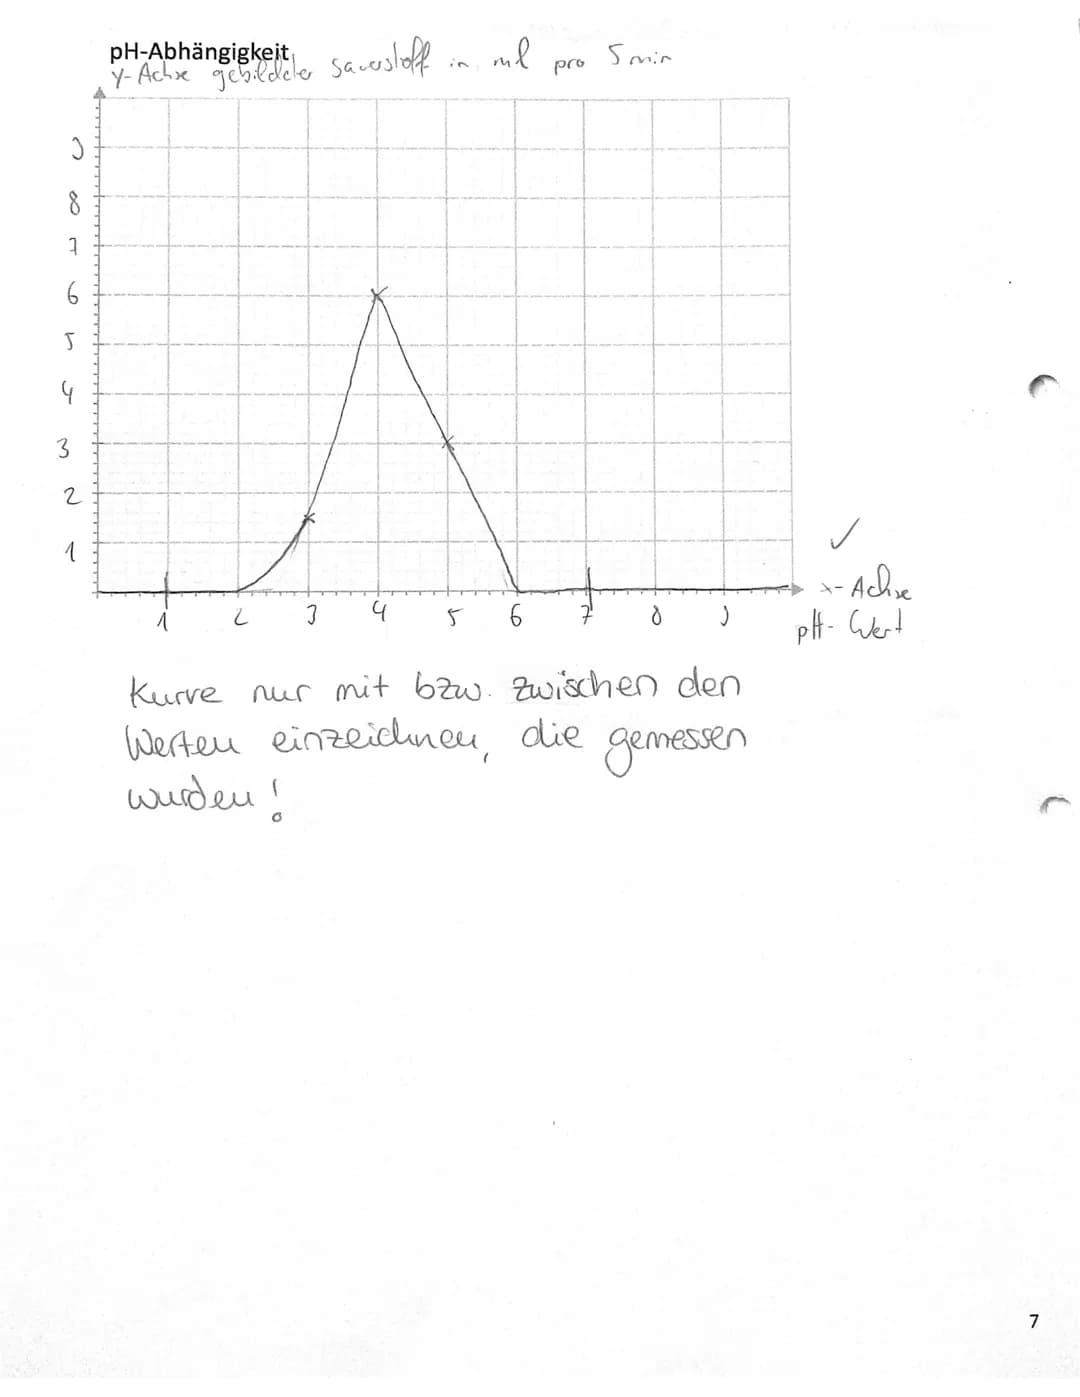 pH-Abhängigkeit
y-Achse gebildeter sauerstoff in ml pro 5 min
9
8
7
6
5
4
3
2
1
1 2 3 4 5 6 7 8 9
✓
x-Achse
pH-Wert
Kurve nur mit bzw. zwischen den
Werten einzeichnen, die gemessen
wurden!
7